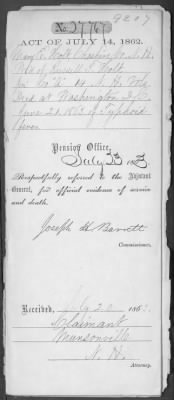 9207
No. 2776
ACT OF JULY 14, 1862.
Mary E. Wolf Cheshire Co. N. H.
Wid of Russell S. Wolf
in Co "A" 14 N. H. Vols
Died at Washington D.C.
June 21 1863 of Typhoid
Fever
Pension Office,
July 23 1863
Respectfully referred to the Adjutant
General, for official evidence of service
and death.
Joseph H Barrett
Commissioner.
Received, July 20 186
Claimant
Munsonville
N. H.
Attorney.